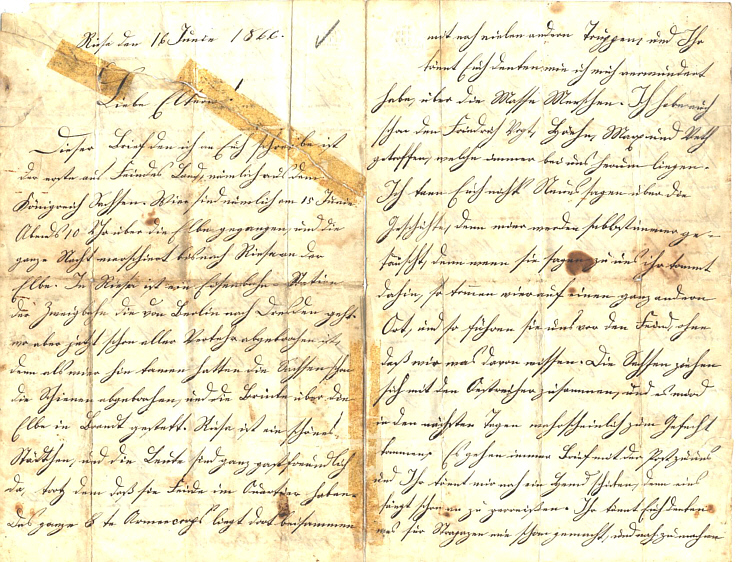 Riesa den 16 Junie 1866.
Liebe Eltern!
Dieser Brief den ich an Euch schreibe ist
der erste aus Feindes Land, nämlich aus dem
Königreich Sachsen. Wier sind nämlich am 15 Junie
Abends 10 Uhr über die Elbe gegangen, und die
ganze Nacht marschiert bis nach Riesa an der
Elbe. In Riesa ist ein Eisenbahn-Station
der Zweigbahn die von Berlin nach Dresden geht.
wo aber jetzt schon aller Verkehr abgebrochen ist,
denn als wier hin kamen hatten die Sachsen schon
die Schienen abgebrochen, und die Brücke über die
Elbe in Brandt gestekt. Riesa ist ein schönes
Städtchen, und die Leute sind ganz gastfreundlich
da, trotz dem daß sie Feinde im Quartier haben.
Das ganze 8te Armeecorps liegt dort beisammen
mit noch vielen andern Truppen, und Ihr
könnt Euch denken wie ich mich verwundert
habe, über die Masse Menschen. Ich habe auch
schon den Friedrich Vogt, Höhn, Max und Veth
getroffen, welche immer bei uns herum liegen.
Ich kann Euch nichts Neues sagen über die
Geschichte, denn wier werden selbst immer ge-
täuscht, denn wenn sie sagen zu uns ihr kommt
dahin, so kommen wier auf einen ganz andern
Ort, und so führen sie uns vor den Feind, ohne
daß wir was davon wissen. Die Sachsen ziehen
sich mit den Oestreicher zusammen, und es wird
in den nächsten Tagen wahrscheinlich zum Gefecht
kommen. Es gehen immer Brief mit der Post
und Ihr könnt mir noch ein Hemd schicken, denn eins
fängt schon an zu zerreißen. Ihr könnt Euch denken
was für Strapazen wir schon gemacht, und noch zu machen